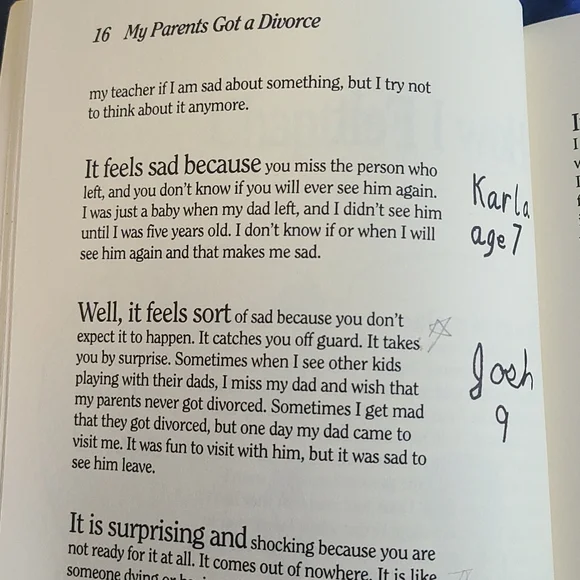 16 My Parents Got a Divorce
my teacher if I am sad about something, but I try not
to think about it anymore.
It feels sad because you miss the person who
left, and you don't know if you will ever see him again.
I was just a baby when my dad left, and I didn't see him
until I was five years old. I don't know if or when I will
see him again and that makes me sad.
Karla
age 7
Well, it feels sort of sad because you don't
expect it to happen. It catches you off guard. It takes
you by surprise. Sometimes when I see other kids
playing with their dads, I miss my dad and wish that
my parents never got divorced. Sometimes I get mad
that they got divorced, but one day my dad came to
visit me. It was fun to visit with him, but it was sad to
see him leave.
Josh
9
It is surprising and shocking because you are
not ready for it at all. It comes out of nowhere. It is like
someone dying or